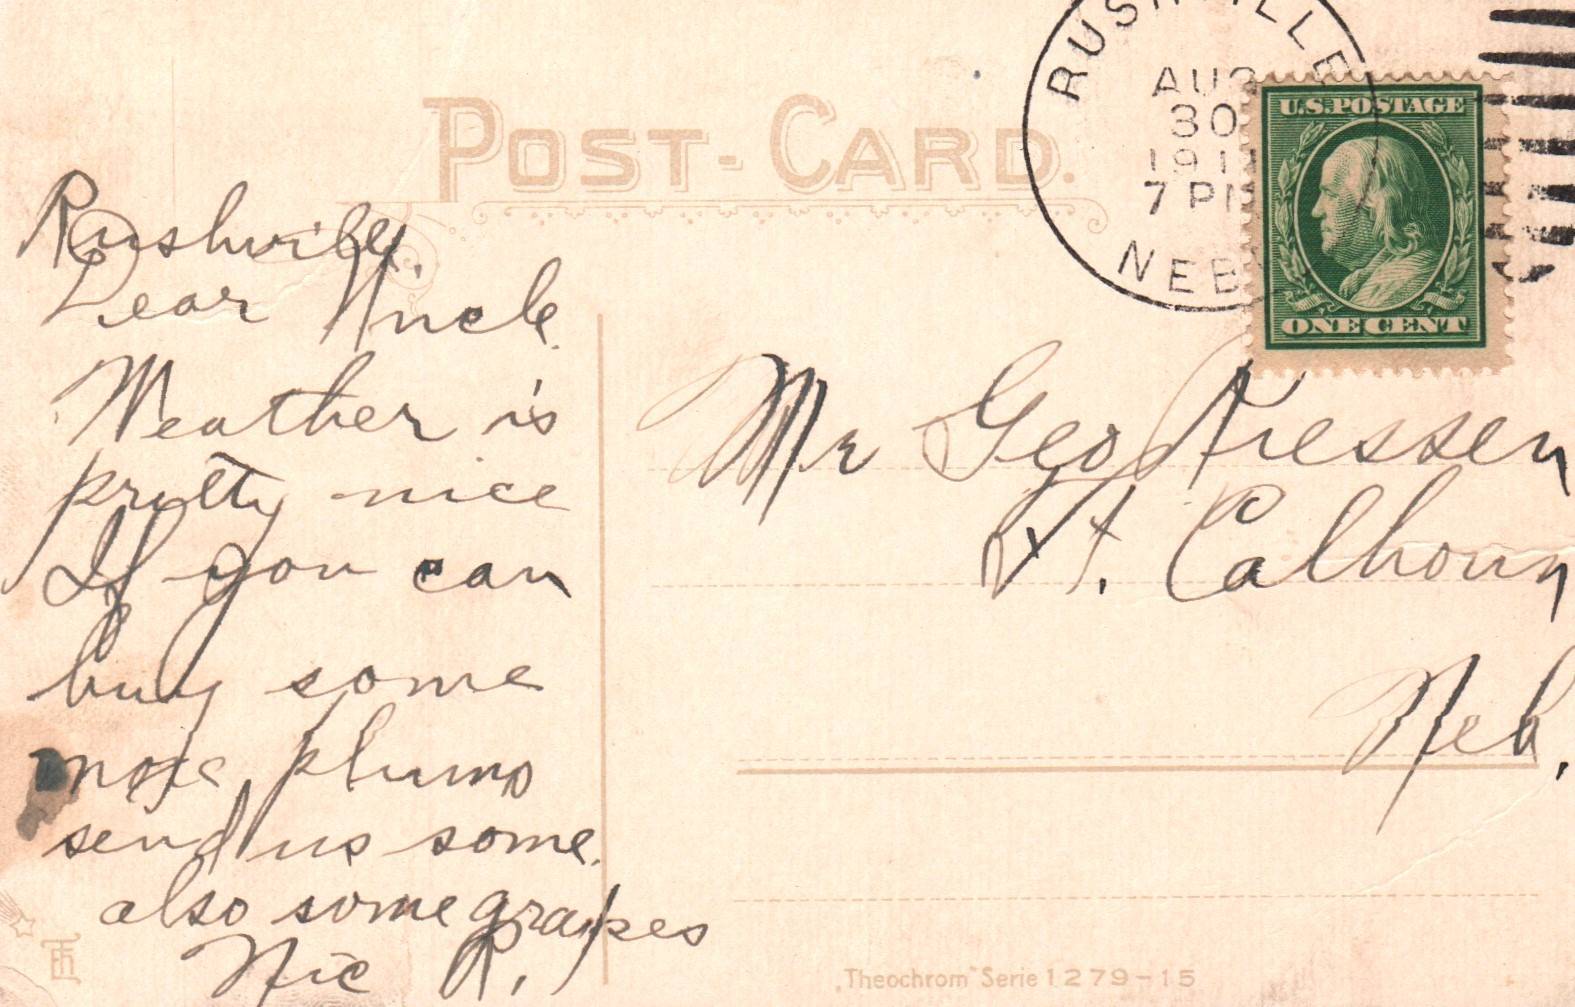 RUSHVILLE
AUG
30
191
7 PM
NEB
U.S. POSTAGE
ONE CENT
POST-CARD.
Rushville,
Dear Uncle.
Weather is
pretty nice
If you can
buy some
more plums
send us some.
also some grapes
Nic R.
Mr Geo Riessen
Ft. Calhoun
Neb.
„Theochrom" Serie 1279-15